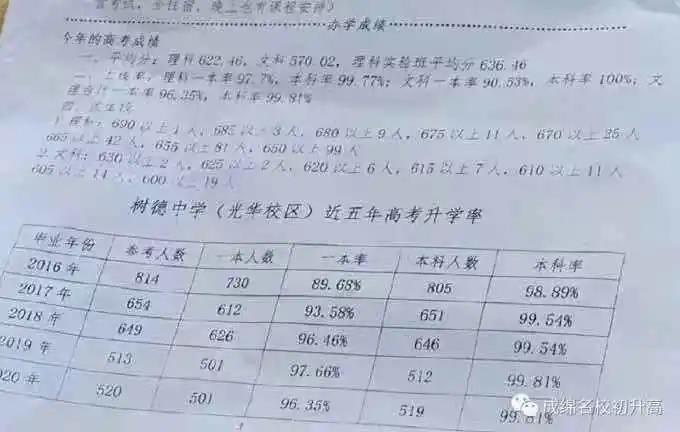 晚上也有课程安排）
办学成绩
今年的高考成绩
一、平均分：理科622.46，文科570.02，理科实验班平均分636.46
二、上线率：理科一本率97.7%，本科率99.77%；文科一本率90.53%，本科率100%；文
理合计一本率96.35%，本科率99.81%
1.理科：690以上1人，685以上3人，680以上9人，675以上11人，670以上25人
665以上42人，655以上81人，650以上99人
2.文科：630以上2人，625以上2人，620以上6人，615以上7人，610以上11人
605以上14人，600以上19人
树德中学（光华校区）近五年高考升学率
毕业年份 参考人数 一本人数 一本率 本科人数 本科率
2016年 814 730 89.68% 805 98.89%
2017年 654 612 93.58% 651 99.54%
2018年 649 626 96.46% 646 99.54%
2019年 513 501 97.66% 512 99.81%
020年 520 501 96.35% 519 99.81%
成绵名校初升高